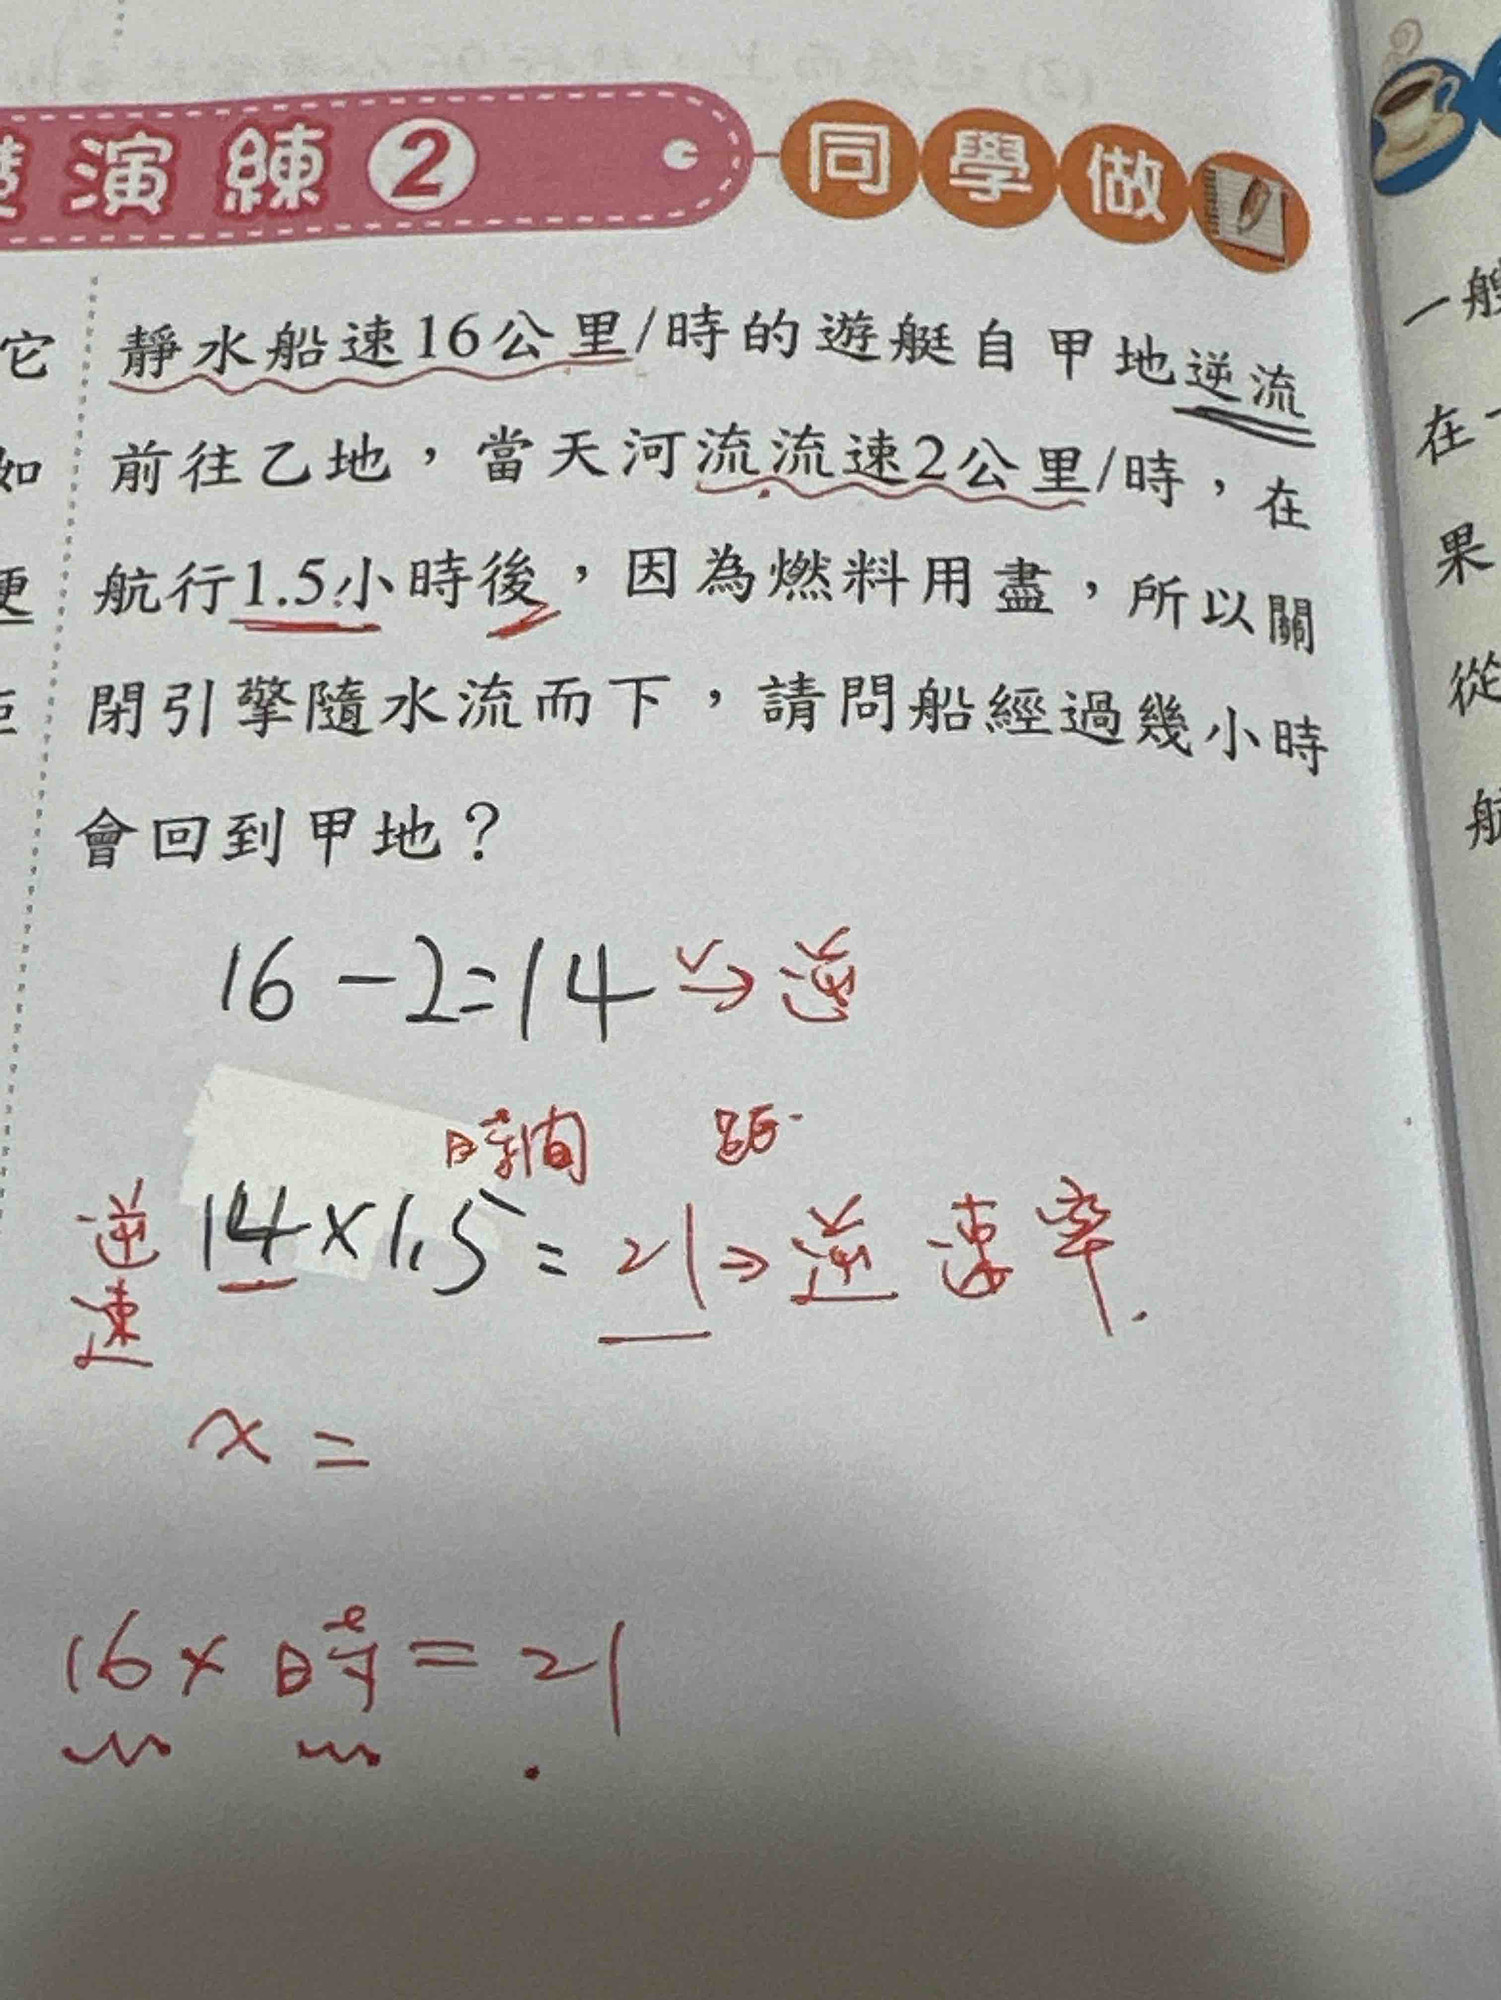 演練2 同學做
靜水船速16公里/時的遊艇自甲地逆流
前往乙地，當天河流流速2公里/時，在
航行1.5小時後，因為燃料用盡，所以關
閉引擎隨水流而下，請問船經過幾小時
會回到甲地？
16-2=14→逆
時間 距
逆速 14×1.5=21→逆速率.
x=
16×時=21
它
如
便
一艘
在
果
從
航